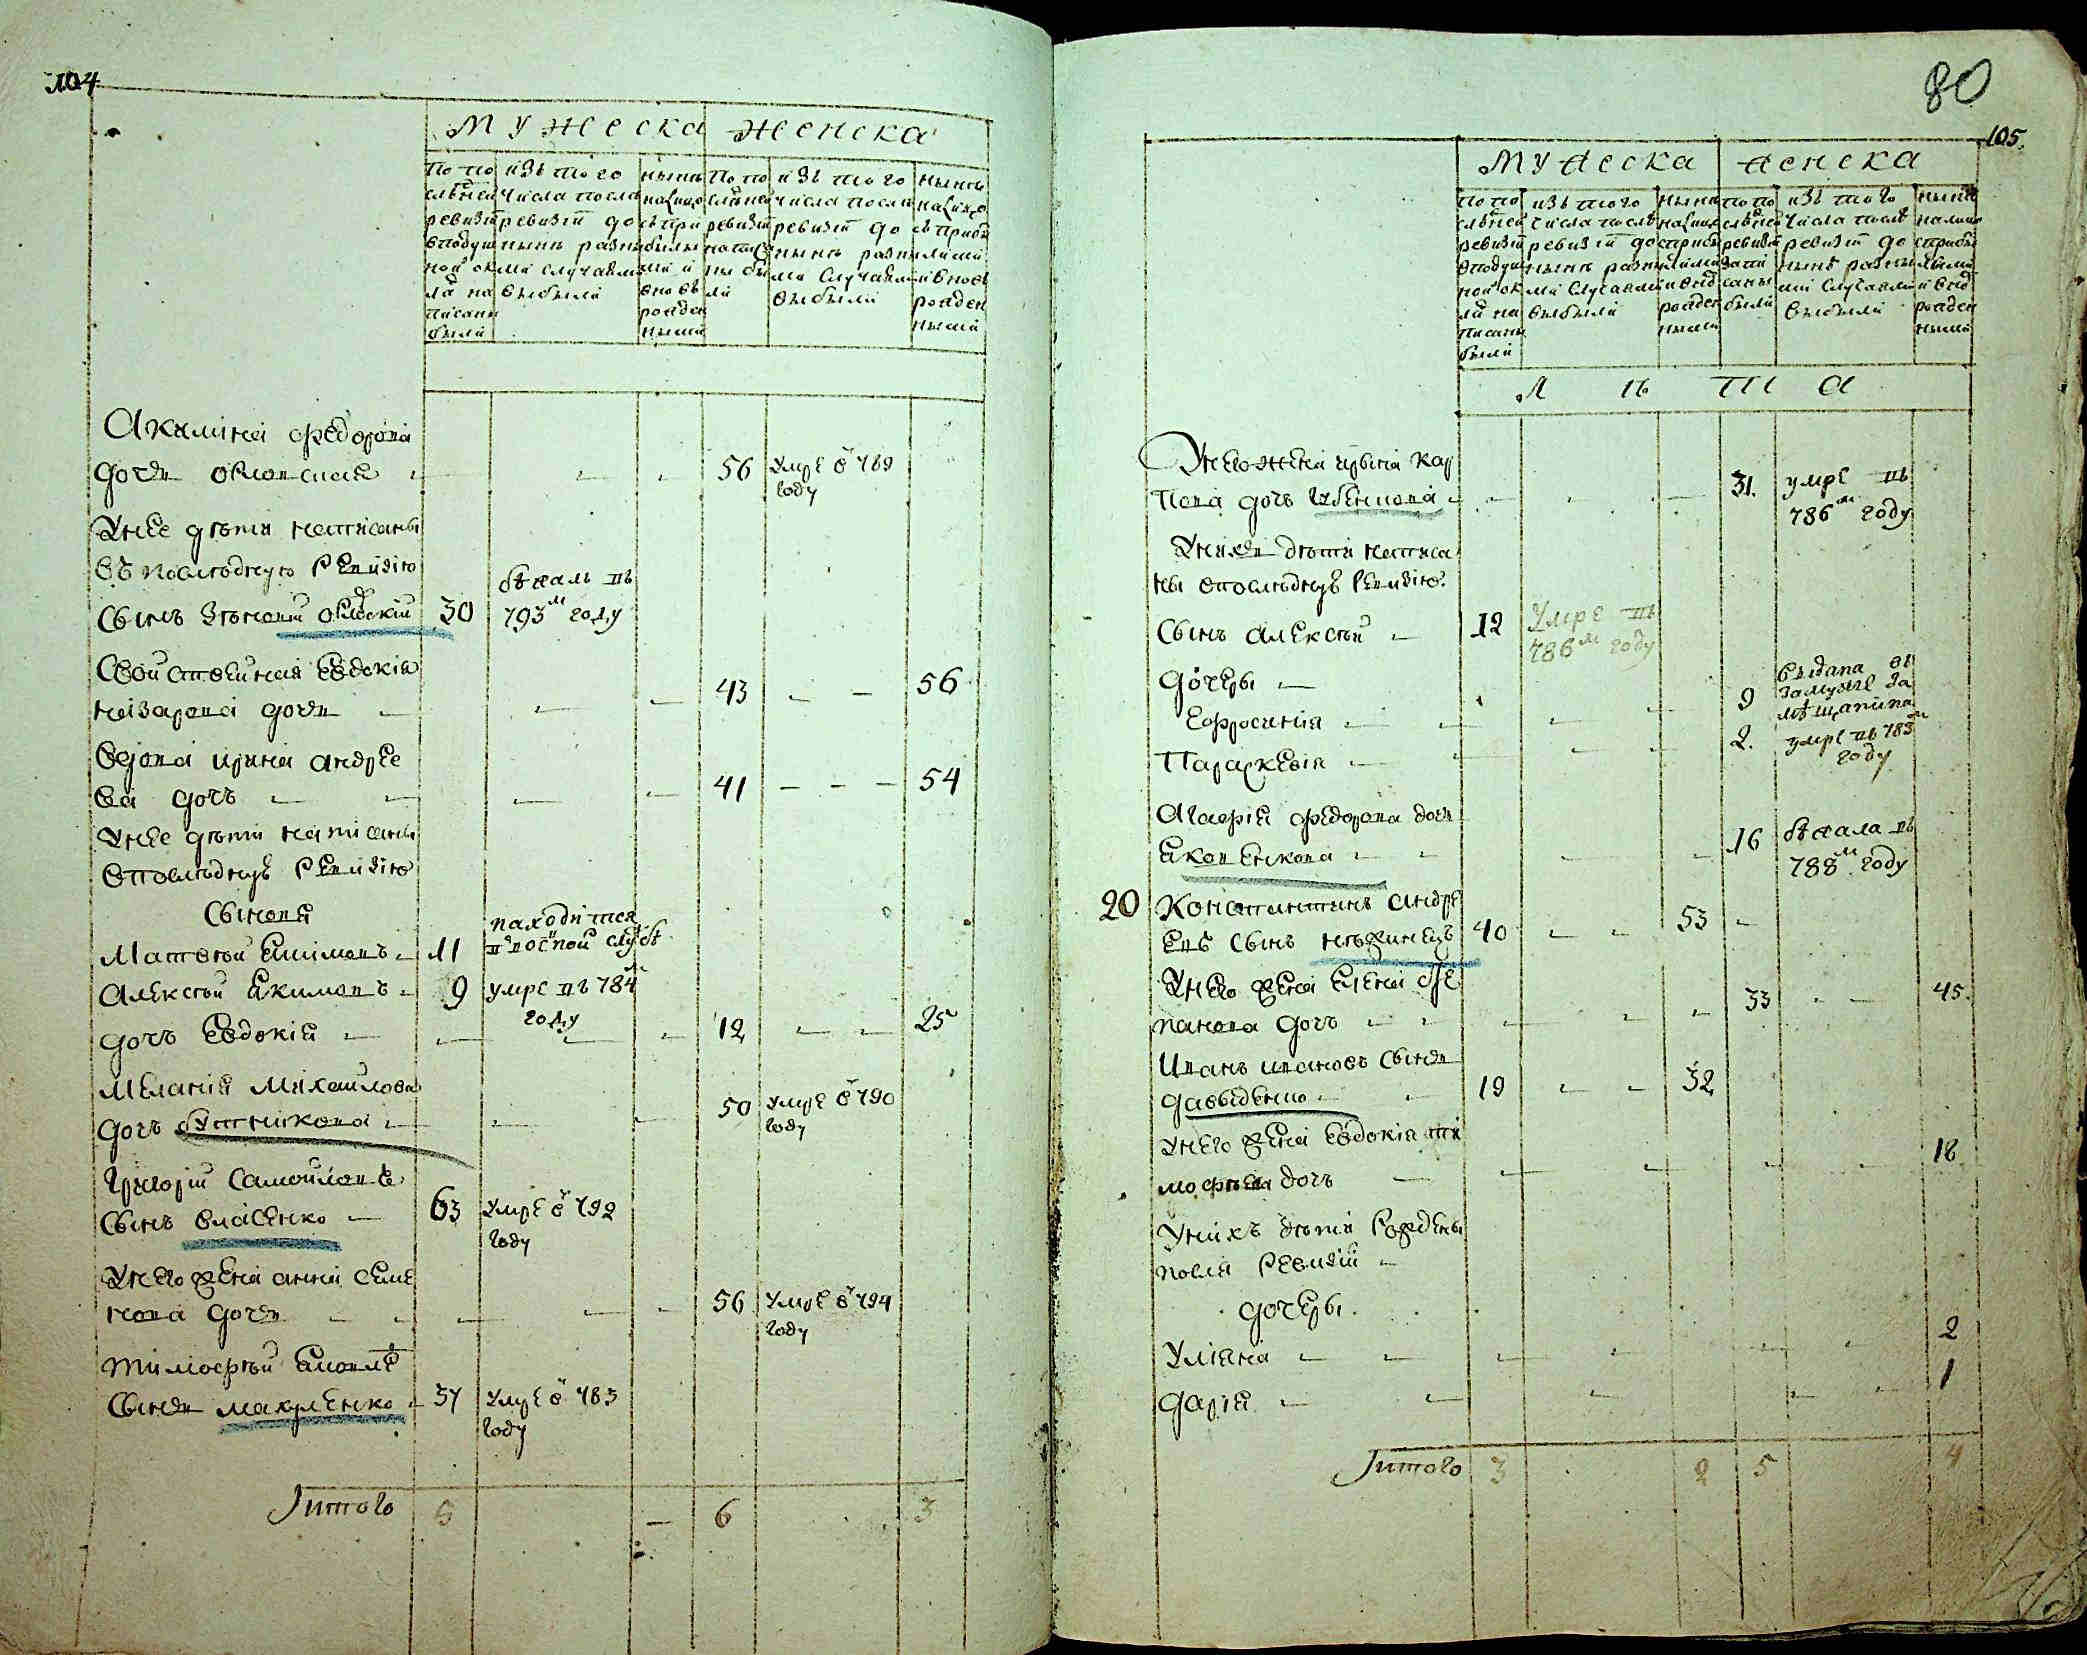 104
Мужеска Женска
По по
слѣней
ревизіи
вподуш
ной ок
ладъ на
писаны
были
изъ того
числа после
ревизіи до
нынѣ разны
ми случаями
выбыли
нынѣ
налицо
съ при
былы
ми и
вновь
рожден
ными
По по
слѣней
ревизіи
написа
ны бы
ли
изъ того
числа после
ревизіи до
нынѣ разны
ми случаями
выбыли
нынѣ
налицо
съ прибы
лыми
и вновь
рожден
ными
Акилина Федорова
дочь 56 умре в 789
году
Унее дѣти написаны
въ последную ревизію
Сынъ 30 бежалъ въ
793м году
Свойственная Евдокія
Назарова дочь 43 56
вдова Ирина Андрее
ва дочь 41 54
Унее дѣти написаны
впоследную ревизію
Сыновя
Матвей Екимовъ 11 находится
в военой служб
Алексей Екимовъ 9 умре въ 784
году
дочь Евдокія 12 25
Меланія Михайлова
дочь Бутникова 50 умре в 790
году
Григорій Самойловъ
Сынъ Власенко 63 умре в 792
году
Унего жена Анна Семе
нова дочь 56 умре в 794
году
Тимофей
Сынъ Макренко 37 умре в 783
году
Итого 5 6 3
80
105.
Мужеска Женска
По по
слѣней
ревизіи
вподуш
ной ок
ладъ на
писаны
были
изъ того
числа послѣ
ревизіи до
нынѣ разны
ми случаями
выбыли
нынѣ
налицо
сприбы
лыми
и внов
рожден
ными
по по
слѣней
ревизіи
запи
саны
были
изъ того
числа послѣ
ревизіи до
нынѣ разны
ми случаями
выбыли
нынѣ
налицо
сприбы
лыми
и внов
рожден
ными
Л ѣ т а
Унего жена Ирина Кар
пова дочь 31. умре въ
786м году
Унихъ дѣти написа
ны впоследную ревизію.
Сынъ Алексей 12 умре въ
786м году
дочери
Ефросинія 9 выдана въ
замуже за
мѣщанина
Параскевія 2. умре въ 783м
году
Агафія Федорова дочь
Яковенкова 16 бежала въ
788м году
20 Константинъ Андре
евъ Сынъ Нѣжинецъ 40 53
Унего жена Елена Сте
панова дочь 33 45.
Иванъ Ивановъ Сынъ
Давыденко 19 32
Унего жена Евдокія Ти
мофеева дочь 18
Унихъ дѣти рождены
после ревизіи
дочери
Уліяна 2
Дарія 1
Итого 3 2 5 4